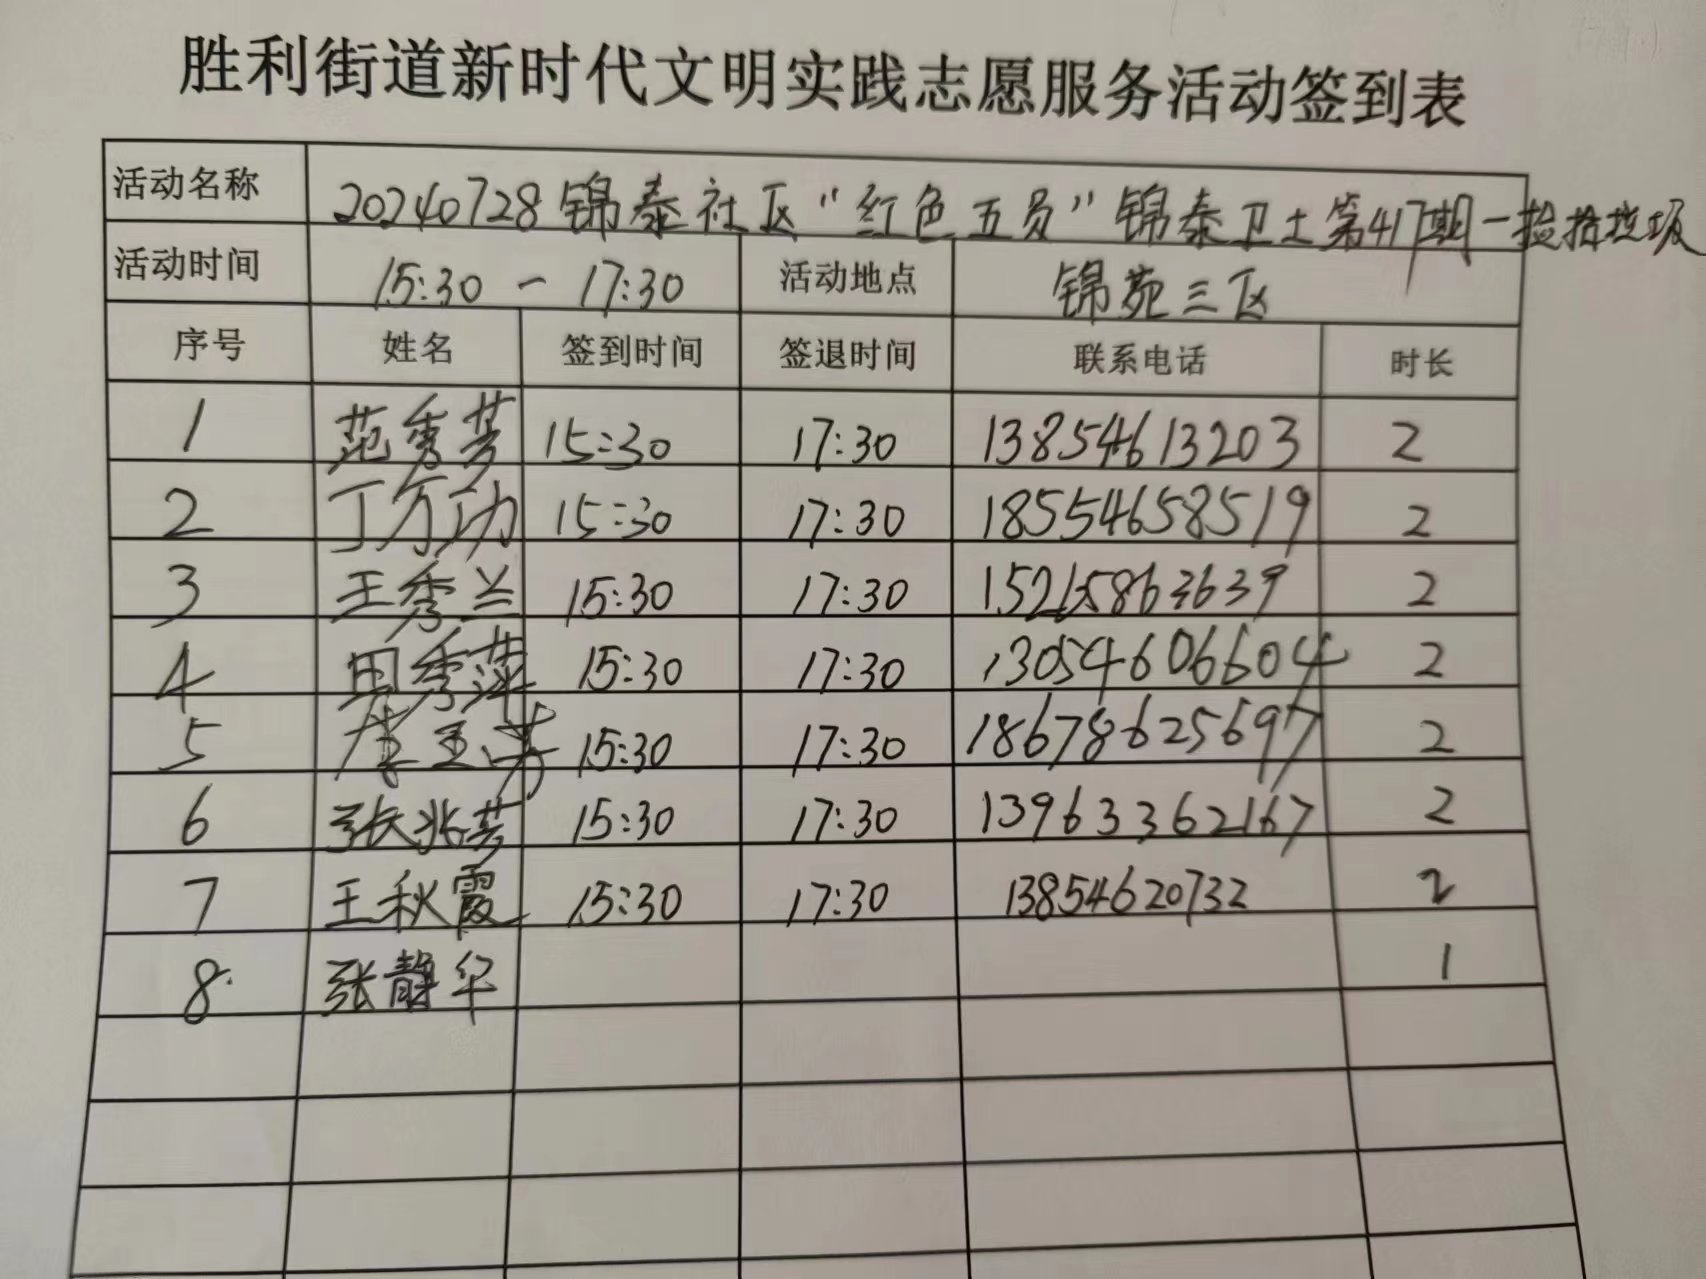 胜利街道新时代文明实践志愿服务活动签到表
活动名称 20240728锦泰社区“红色五员”锦泰卫士第417期-捡拾垃圾
活动时间 15:30 - 17:30 活动地点 锦苑三区
序号 姓名 签到时间 签退时间 联系电话 时长
1 范秀芳 15:30 17:30 13854613203 2
2 丁万功 15:30 17:30 18554658519 2
3 王秀兰 15:30 17:30 15215863639 2
4 田秀萍 15:30 17:30 13054606604 2
5 15:30 17:30 18678625697 2
6 张兆芳 15:30 17:30 13963362167 2
7 王秋霞 15:30 17:30 13854620732 2
8 张静华 1